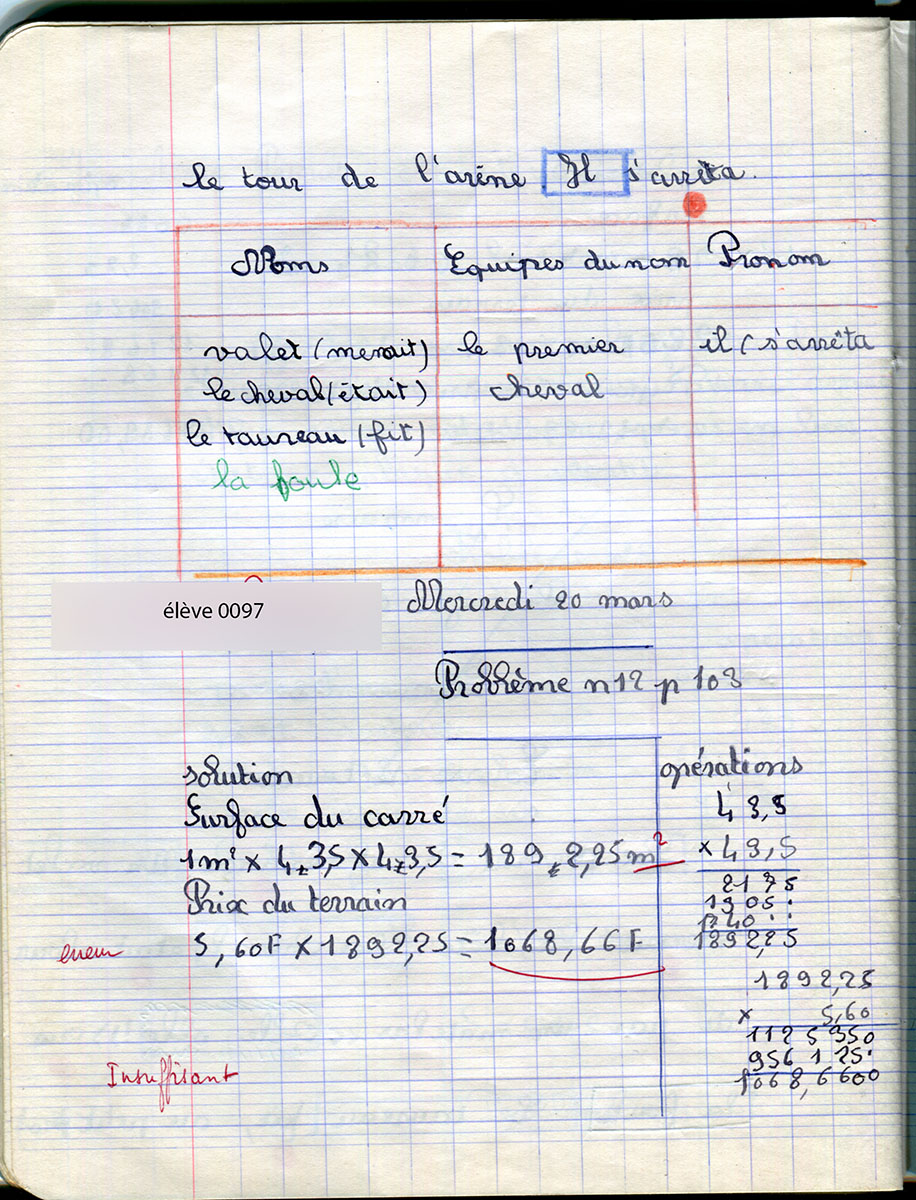 le tour de l'arène Il s'arrêta.
Noms Equipes du nom Pronom
valet (menait) le premier il (s'arrêta
le cheval (était) cheval
le taureau (fit)
la foule
élève 0097
Mercredi 20 mars
Problème n12 p 103
solution
opérations
Surface du carré
1m² x 4,3,5 x 4,3,5 = 189,2,25m²
Prix du terrain
5,60F x 1892,25 = 1068,66F
erreur
Insuffisant
43,5
x 43,5
2175
1305.
1740..
1892,25
1892,25
x 5,60
1125350
956125.
1068,6600